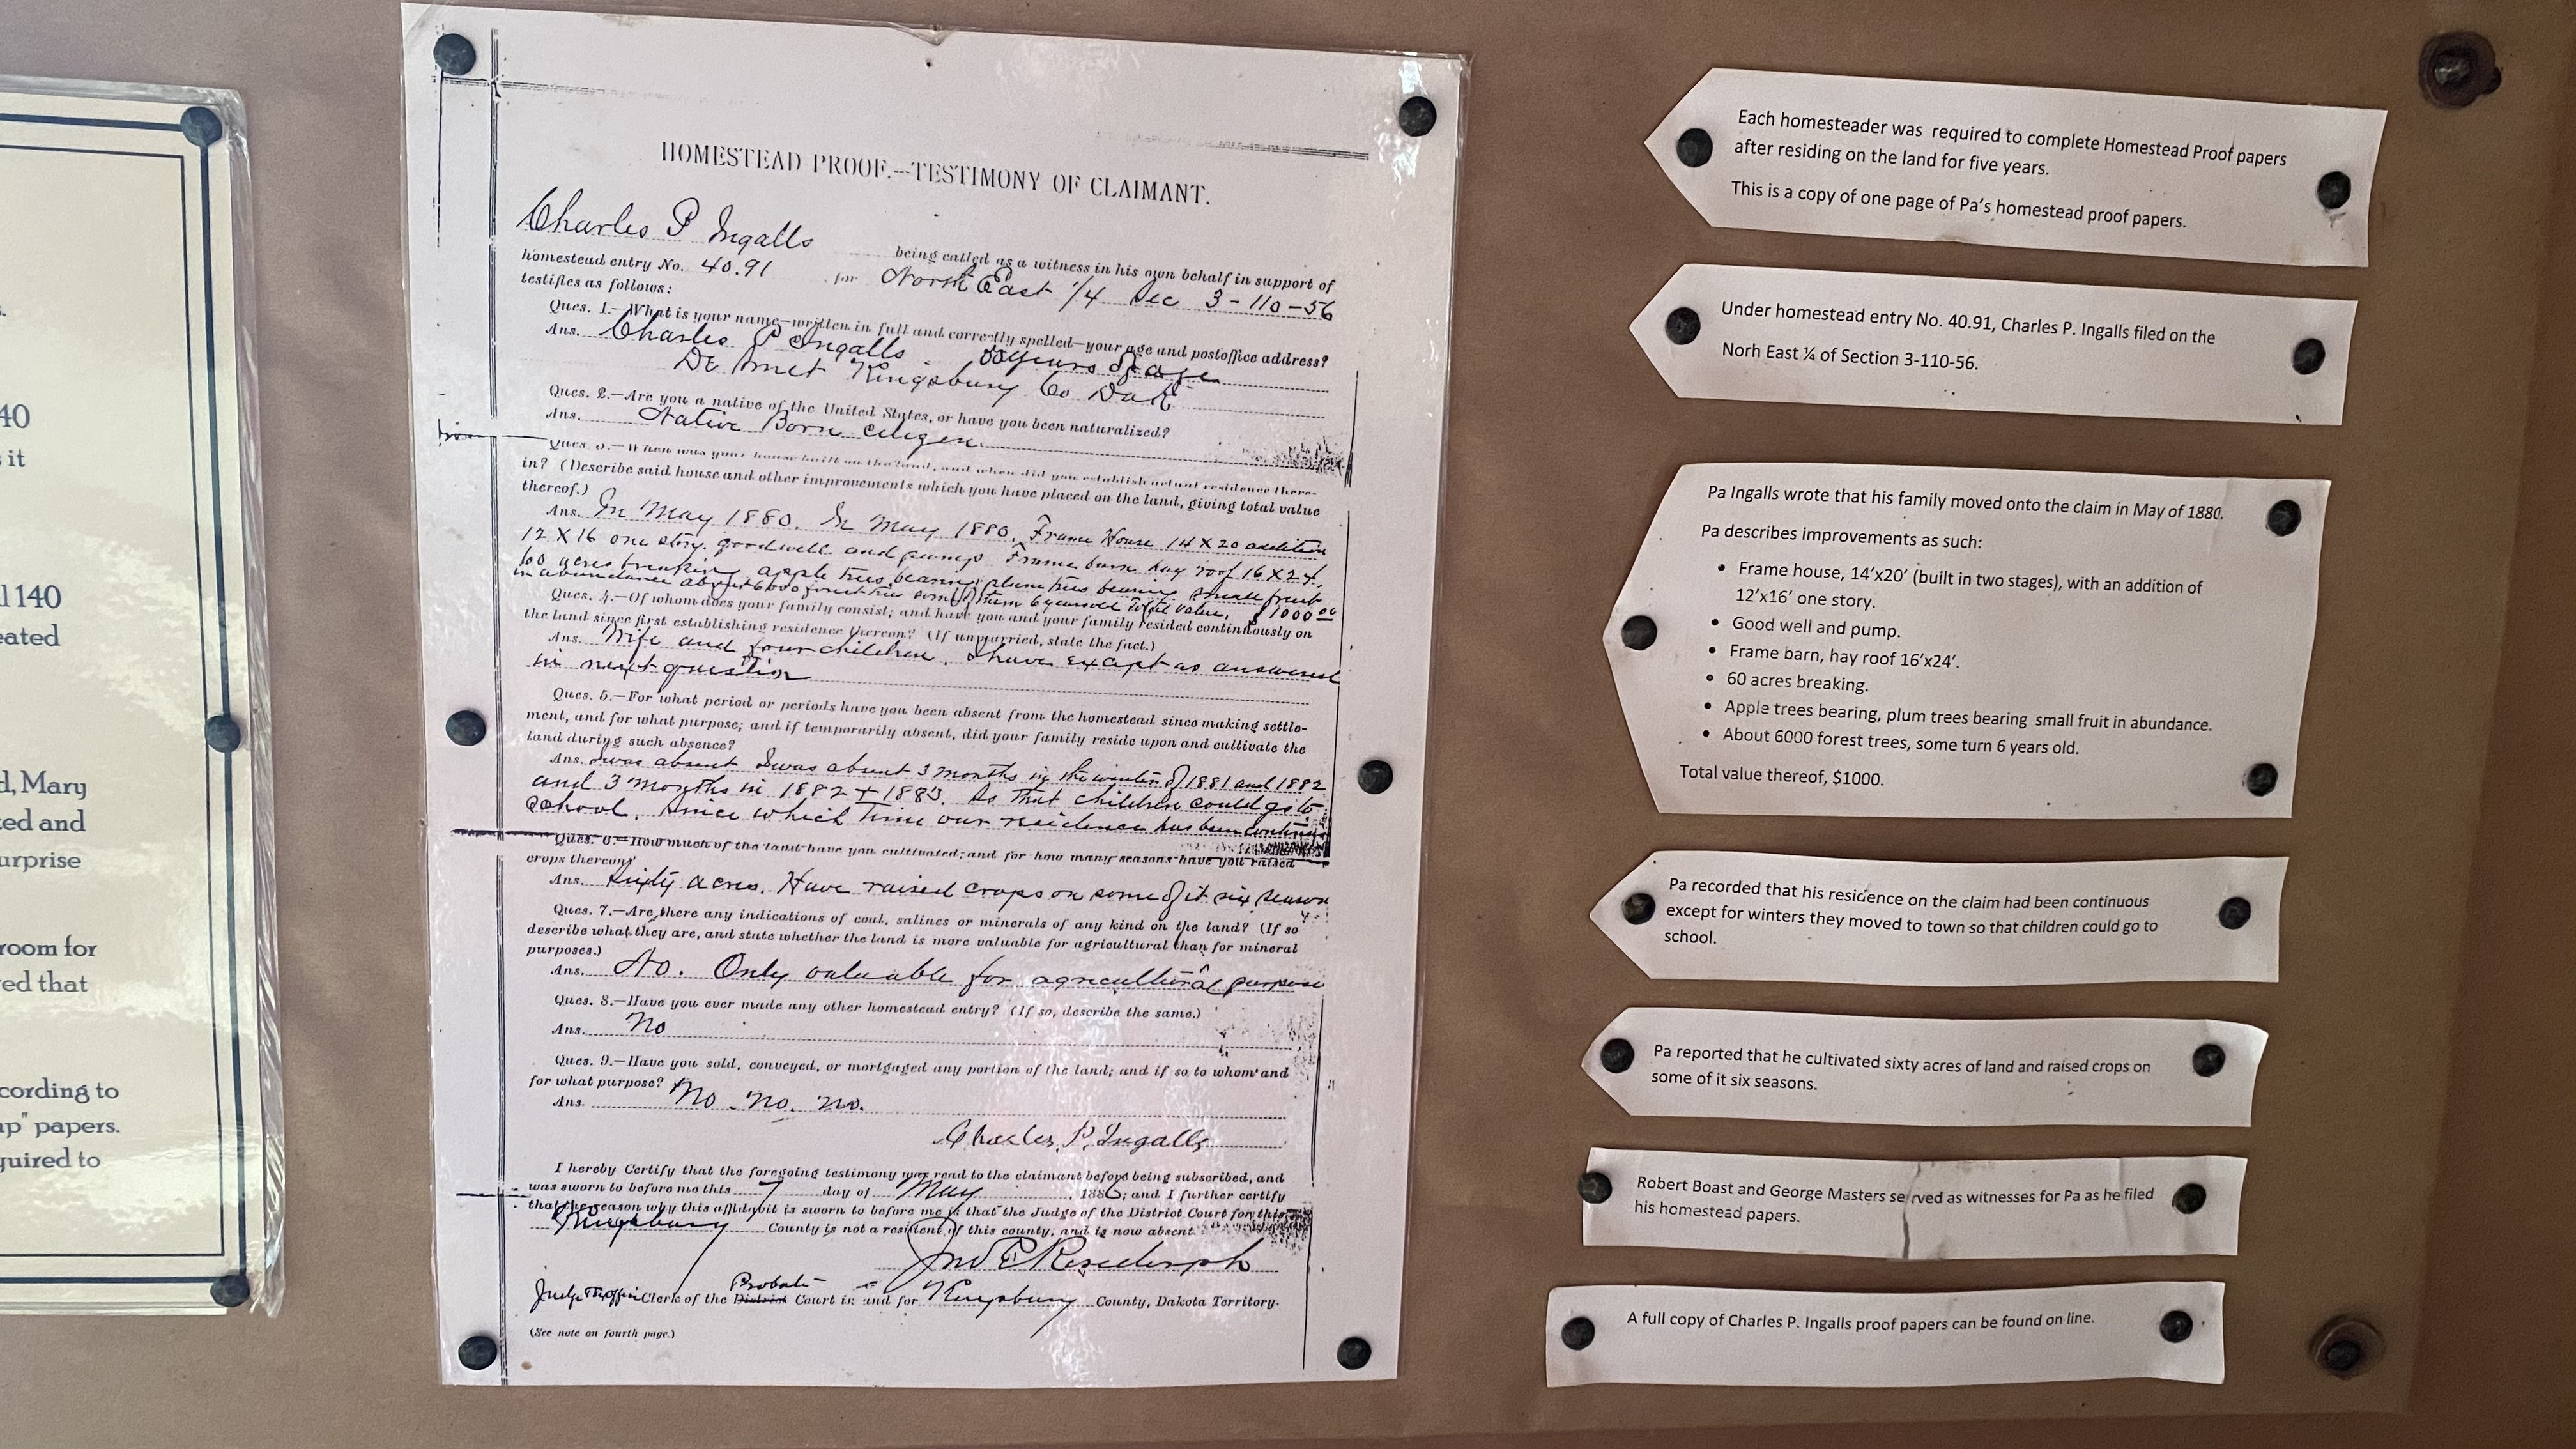 40
it
1140
eated
d, Mary
ted and
urprise
room for
ved that
cording to
up" papers.
quired to
HOMESTEAD PROOF.--TESTIMONY OF CLAIMANT.
Charles P Ingalls being called as a witness in his own behalf in support of
homestead entry No. 40.91 for North East 1/4 Sec 3-110-56
testifies as follows:
Ques. 1.—What is your name—written in full and correctly spelled—your age and postoffice address?
Ans. Charles P Ingalls years of age
De Smet Kingsbury Co Dak
Ques. 2.—Are you a native of the United States, or have you been naturalized?
Ans. Native Born citizen
Ques. 3.—When was your house built on the land, and when did you establish actual residence there-
in? (Describe said house and other improvements which you have placed on the land, giving total value
thereof.)
Ans. In May 1880. In May 1880. Frame House 14 X 20 addition
12 X 16 one story. good well and pump Frame barn hay roof 16 X 24.
60 acres breaking apple trees bearing plum trees bearing small fruit
in abundance about 6000 forest trees some of them 6 years old Total value, $1000.00
Ques. 4.—Of whom does your family consist; and have you and your family resided continuously on
the land since first establishing residence thereon? (If unmarried, state the fact.)
Ans. Wife and four children. I have except as answered
in next question
Ques. 5.—For what period or periods have you been absent from the homestead since making settle-
ment, and for what purpose; and if temporarily absent, did your family reside upon and cultivate the
land during such absence?
Ans. I was absent I was absent 3 months in the winter of 1881 and 1882
and 3 months in 1882 + 1883. So that children could go to
school. Since which time our residence has been continuous
Ques. 6.—How much of the land have you cultivated; and for how many seasons have you raised
crops thereon?
Ans. Sixty acres. Have raised crops on some of it six season
Ques. 7.—Are there any indications of coal, salines or minerals of any kind on the land? (If so
describe what they are, and state whether the land is more valuable for agricultural than for mineral
purposes.)
Ans. No. Only valuable for agricultural purpose
Ques. 8.—Have you ever made any other homestead entry? (If so, describe the same.)
Ans. No
Ques. 9.—Have you sold, conveyed, or mortgaged any portion of the land; and if so to whom and
for what purpose?
Ans. No. No. No.
Charles P. Ingalls
I hereby Certify that the foregoing testimony was read to the claimant before being subscribed, and
was sworn to before me this 7 day of May, 1886; and I further certify
that the reason why this affidavit is sworn to before me is that the Judge of the District Court for this
Kingsbury County is not a resident of this county, and is now absent.
Judge Clerk of the District Probate Court in and for Kingsbury County, Dakota Territory.
(See note on fourth page.)
Each homesteader was required to complete Homestead Proof papers
after residing on the land for five years.
This is a copy of one page of Pa's homestead proof papers.
Under homestead entry No. 40.91, Charles P. Ingalls filed on the
Norh East ¼ of Section 3-110-56.
Pa Ingalls wrote that his family moved onto the claim in May of 1880.
Pa describes improvements as such:
• Frame house, 14'x20' (built in two stages), with an addition of
12'x16' one story.
• Good well and pump.
• Frame barn, hay roof 16'x24'.
• 60 acres breaking.
• Apple trees bearing, plum trees bearing small fruit in abundance.
• About 6000 forest trees, some turn 6 years old.
Total value thereof, $1000.
Pa recorded that his residence on the claim had been continuous
except for winters they moved to town so that children could go to
school.
Pa reported that he cultivated sixty acres of land and raised crops on
some of it six seasons.
Robert Boast and George Masters served as witnesses for Pa as he filed
his homestead papers.
A full copy of Charles P. Ingalls proof papers can be found on line.